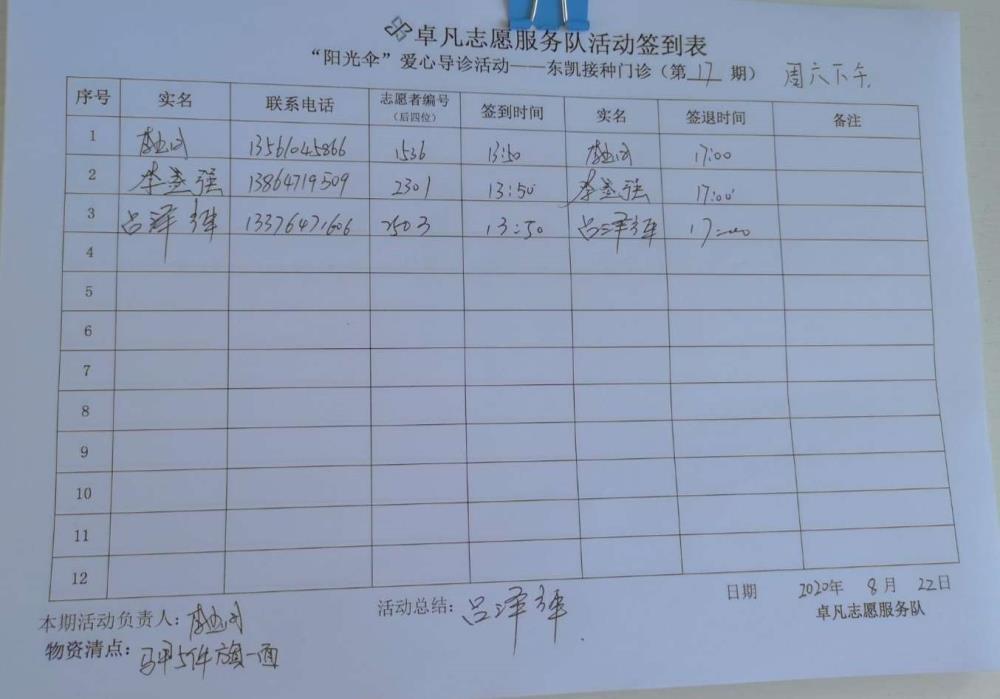 卓凡志愿服务队活动签到表
“阳光伞”爱心导诊活动——东凯接种门诊（第17期） 周六下午
序号 实名 联系电话 志愿者编号（后四位） 签到时间 实名 签退时间 备注
1 13561045866 1536 13:50 17:00
2 李堂强 13864719509 2301 13:50 李堂强 17:00
3 吕泽锋 13376471606 2503 13:50 吕泽锋 17:00
4
5
6
7
8
9
10
11
12
日期 2020年 8月 22日
本期活动负责人： 活动总结：吕泽锋 卓凡志愿服务队
物资清点：马甲5件 旗一面